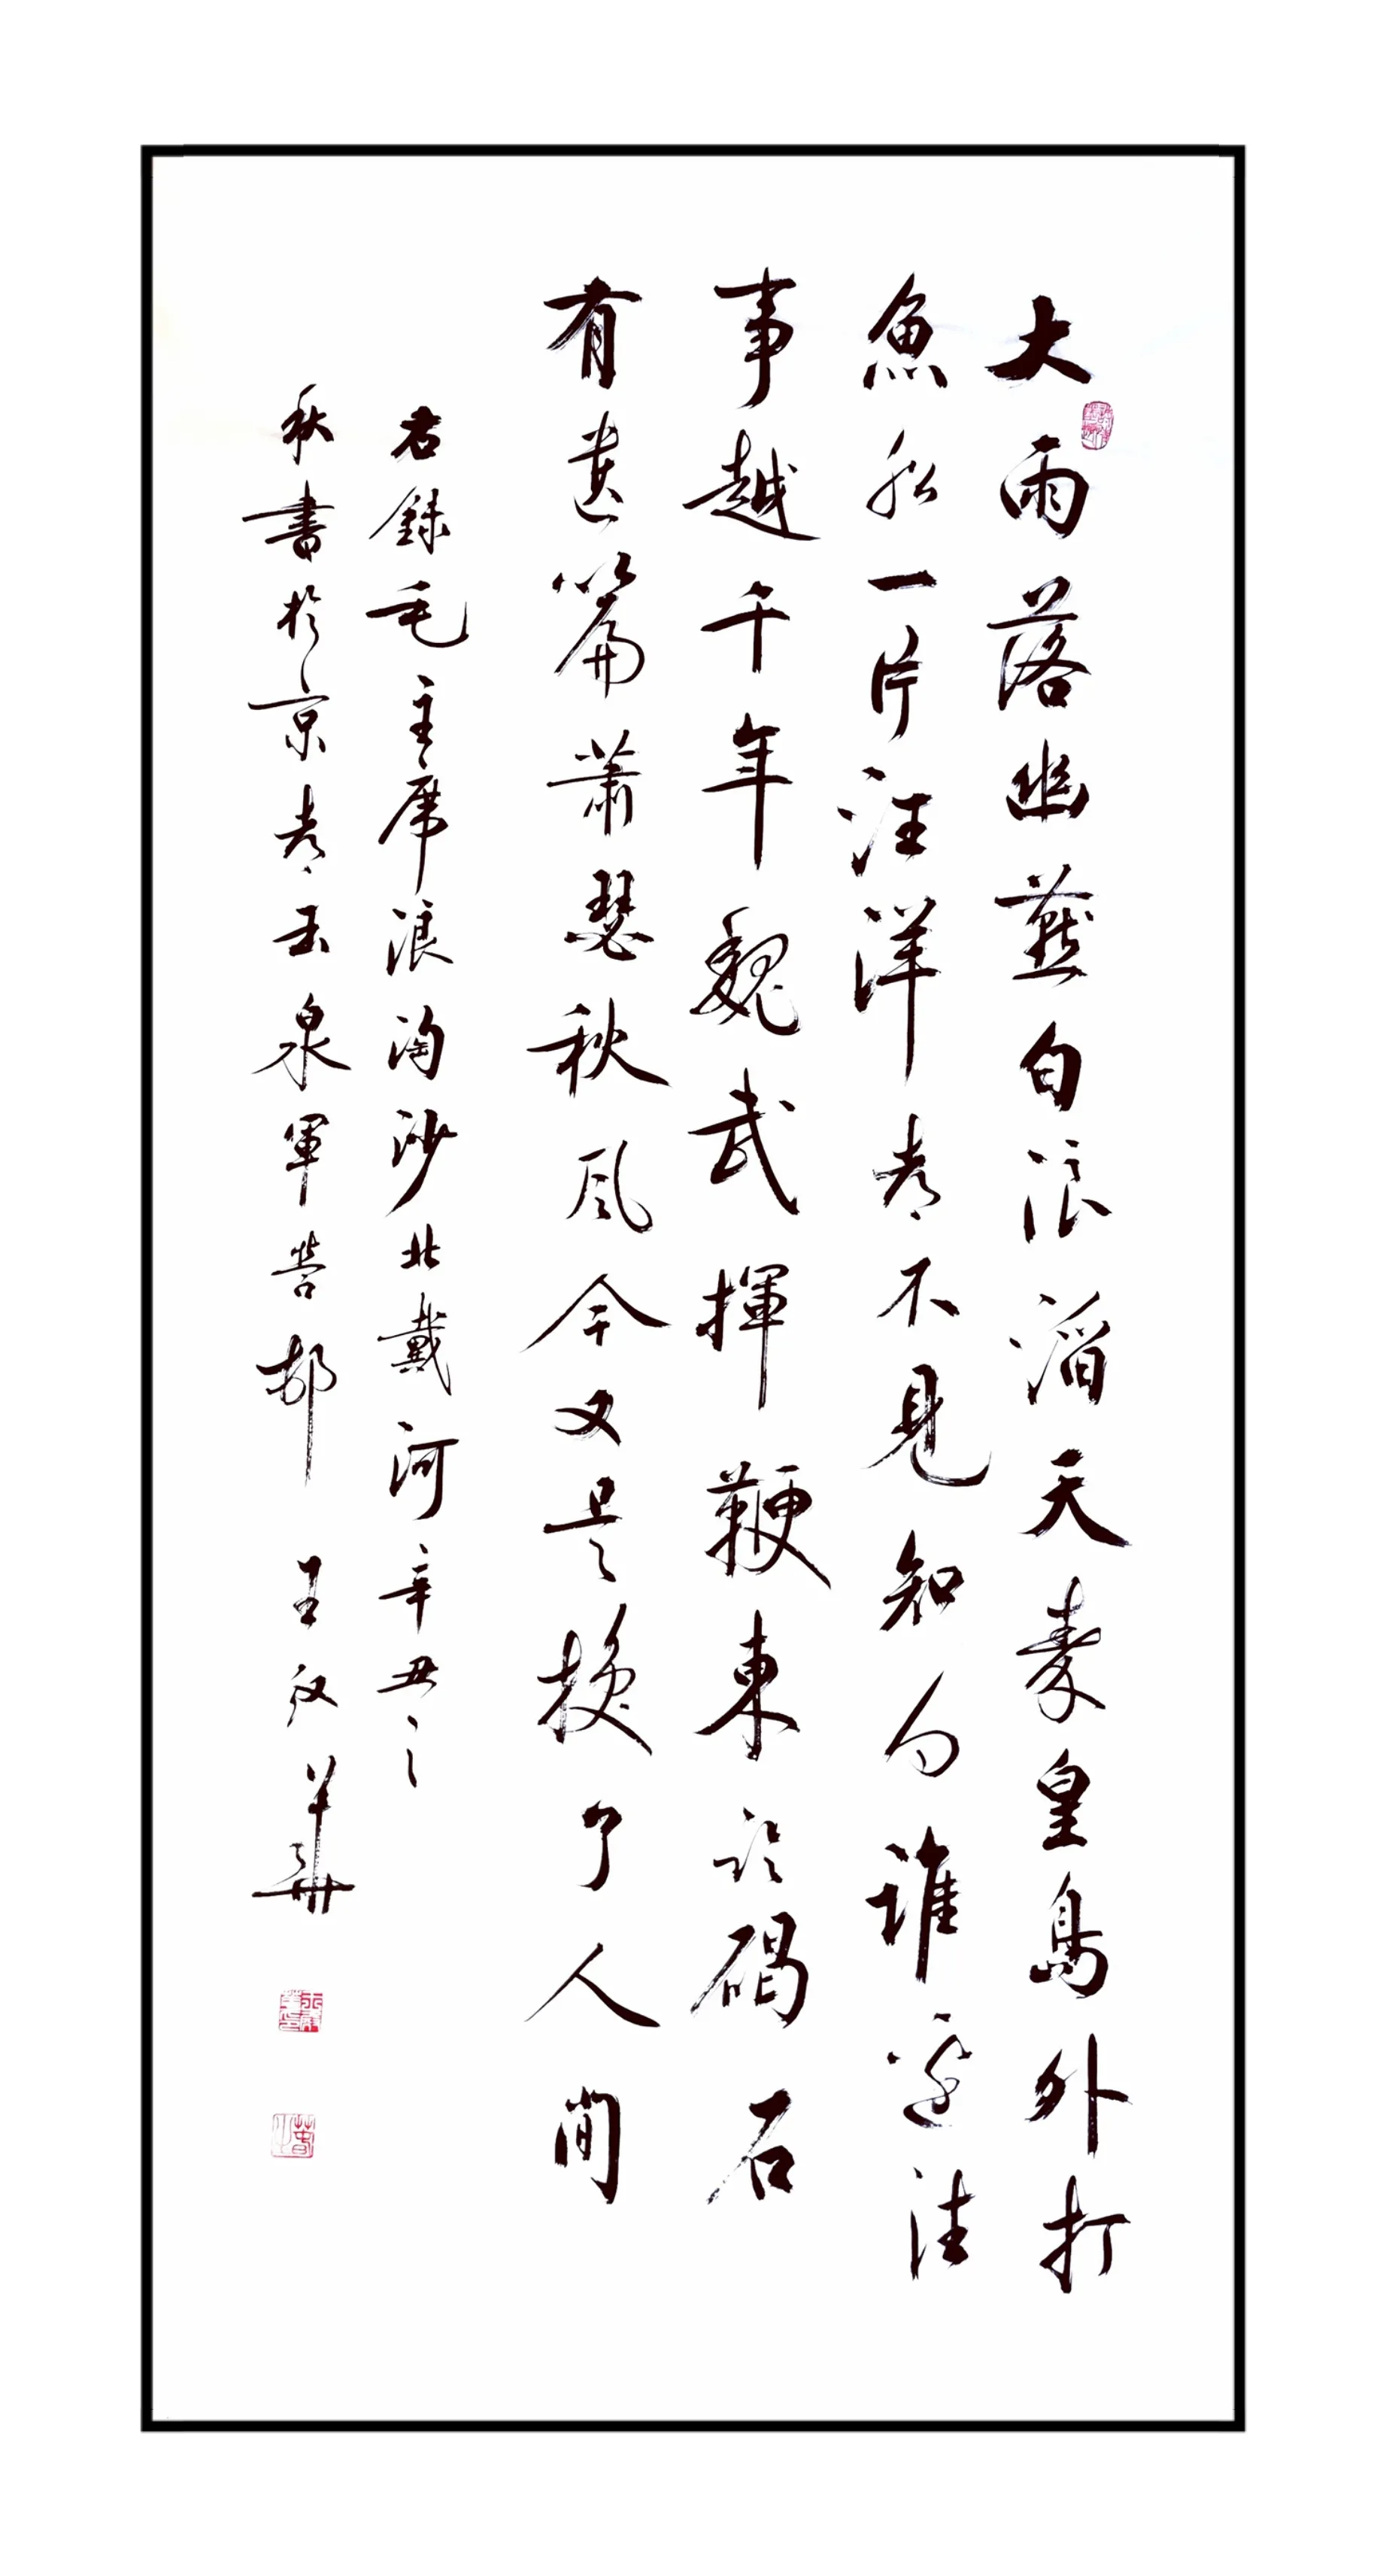 大雨落幽燕白浪滔天秦皇島外打
魚船一片汪洋都不見知向誰邊往
事越千年魏武揮鞭東臨碣石
有遺篇蕭瑟秋風今又是換了人間
右錄毛主席浪淘沙北戴河辛丑之
秋書於京都玉泉軍營郁王汉華